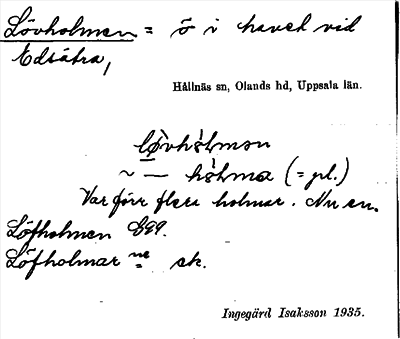 Lövholmen = ö i havet vid
Edsätra,
Hållnäs sn, Olands hd, Uppsala län.
lövhòlmən
~ — hòlma (= pl.)
Var förr flera holmar. Nu en.
Löfholmen
Löfholmar ne sk.
Ingegärd Isaksson 1935.